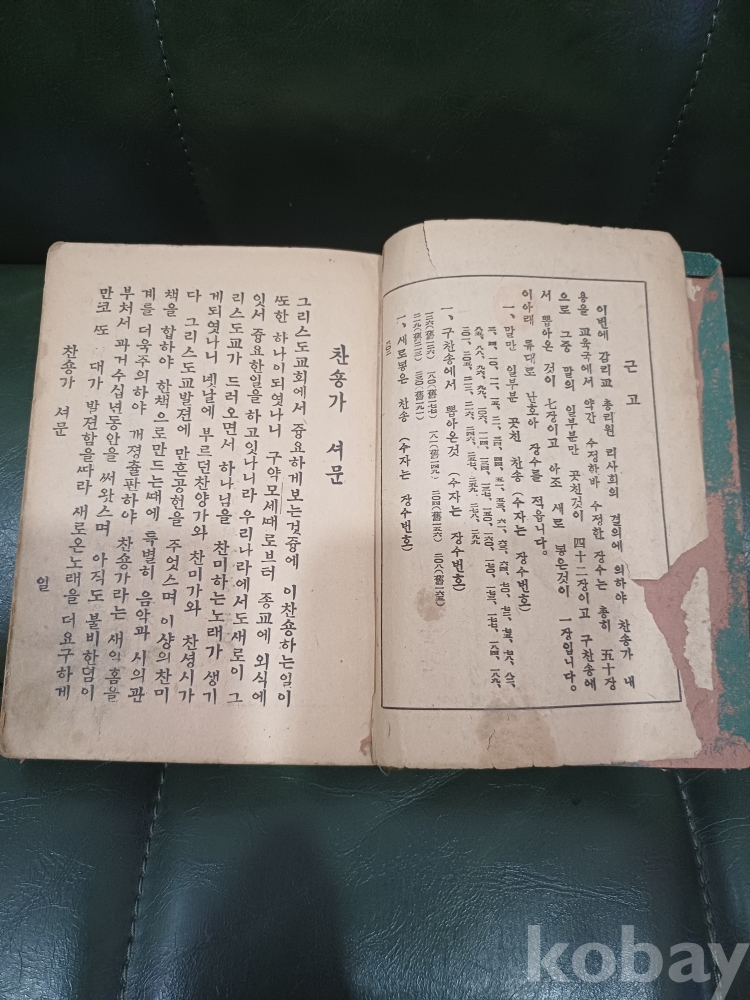 근 고
이번에 감리교 총리원 리사회의 결의에 의하야 찬송가 내
용을 교육국에서 약간 수정하바 수정한 장수는 총히 五十장
으로 그중 말의 일부분만 곳친것이 四十二장이고 구찬송에
서 뽑아온 것이 七장이고 아조 새로 넣은것이 一장입니다。
이아래 류대로 난호아 장수를 적음니다。
一、말만 일부분 곳친 찬송 (수자는 장수번호)
一、구찬송에서 뽑아온것 (수자는 장수번호)
一、새로넣은 찬송 (수자는 장수번호)
찬숑가 셔문
그리스도교회에서 중요하게보는것중에 이찬숑하는일이
또한 하나이되엿나니 구약모세때로브터 종교에 외식에
잇서 중요한일을 하고잇나니라 우리나라에서도새로이 그
리스도교가 드러오면서 하나님을 찬미하는노래가 생기
게되엿나니 녯날에 부르던찬양가와 찬미가와 찬셩시가
다 그리스도교발젼에 만흔공헌을 주엇스며 이샹의찬미
책을 합하야 한책으로만드는때에 특별히 음악과 시의관
계를 더욱주의하야 개졍출판하야 찬숑가라는 새일홈을
부처서 과거수십년동안을 써왓스며 아직도 불비한뎜이
만코 또 대가 발젼함을따라 새로온노래를 더요구하게
찬숑가 셔문
일
kobay